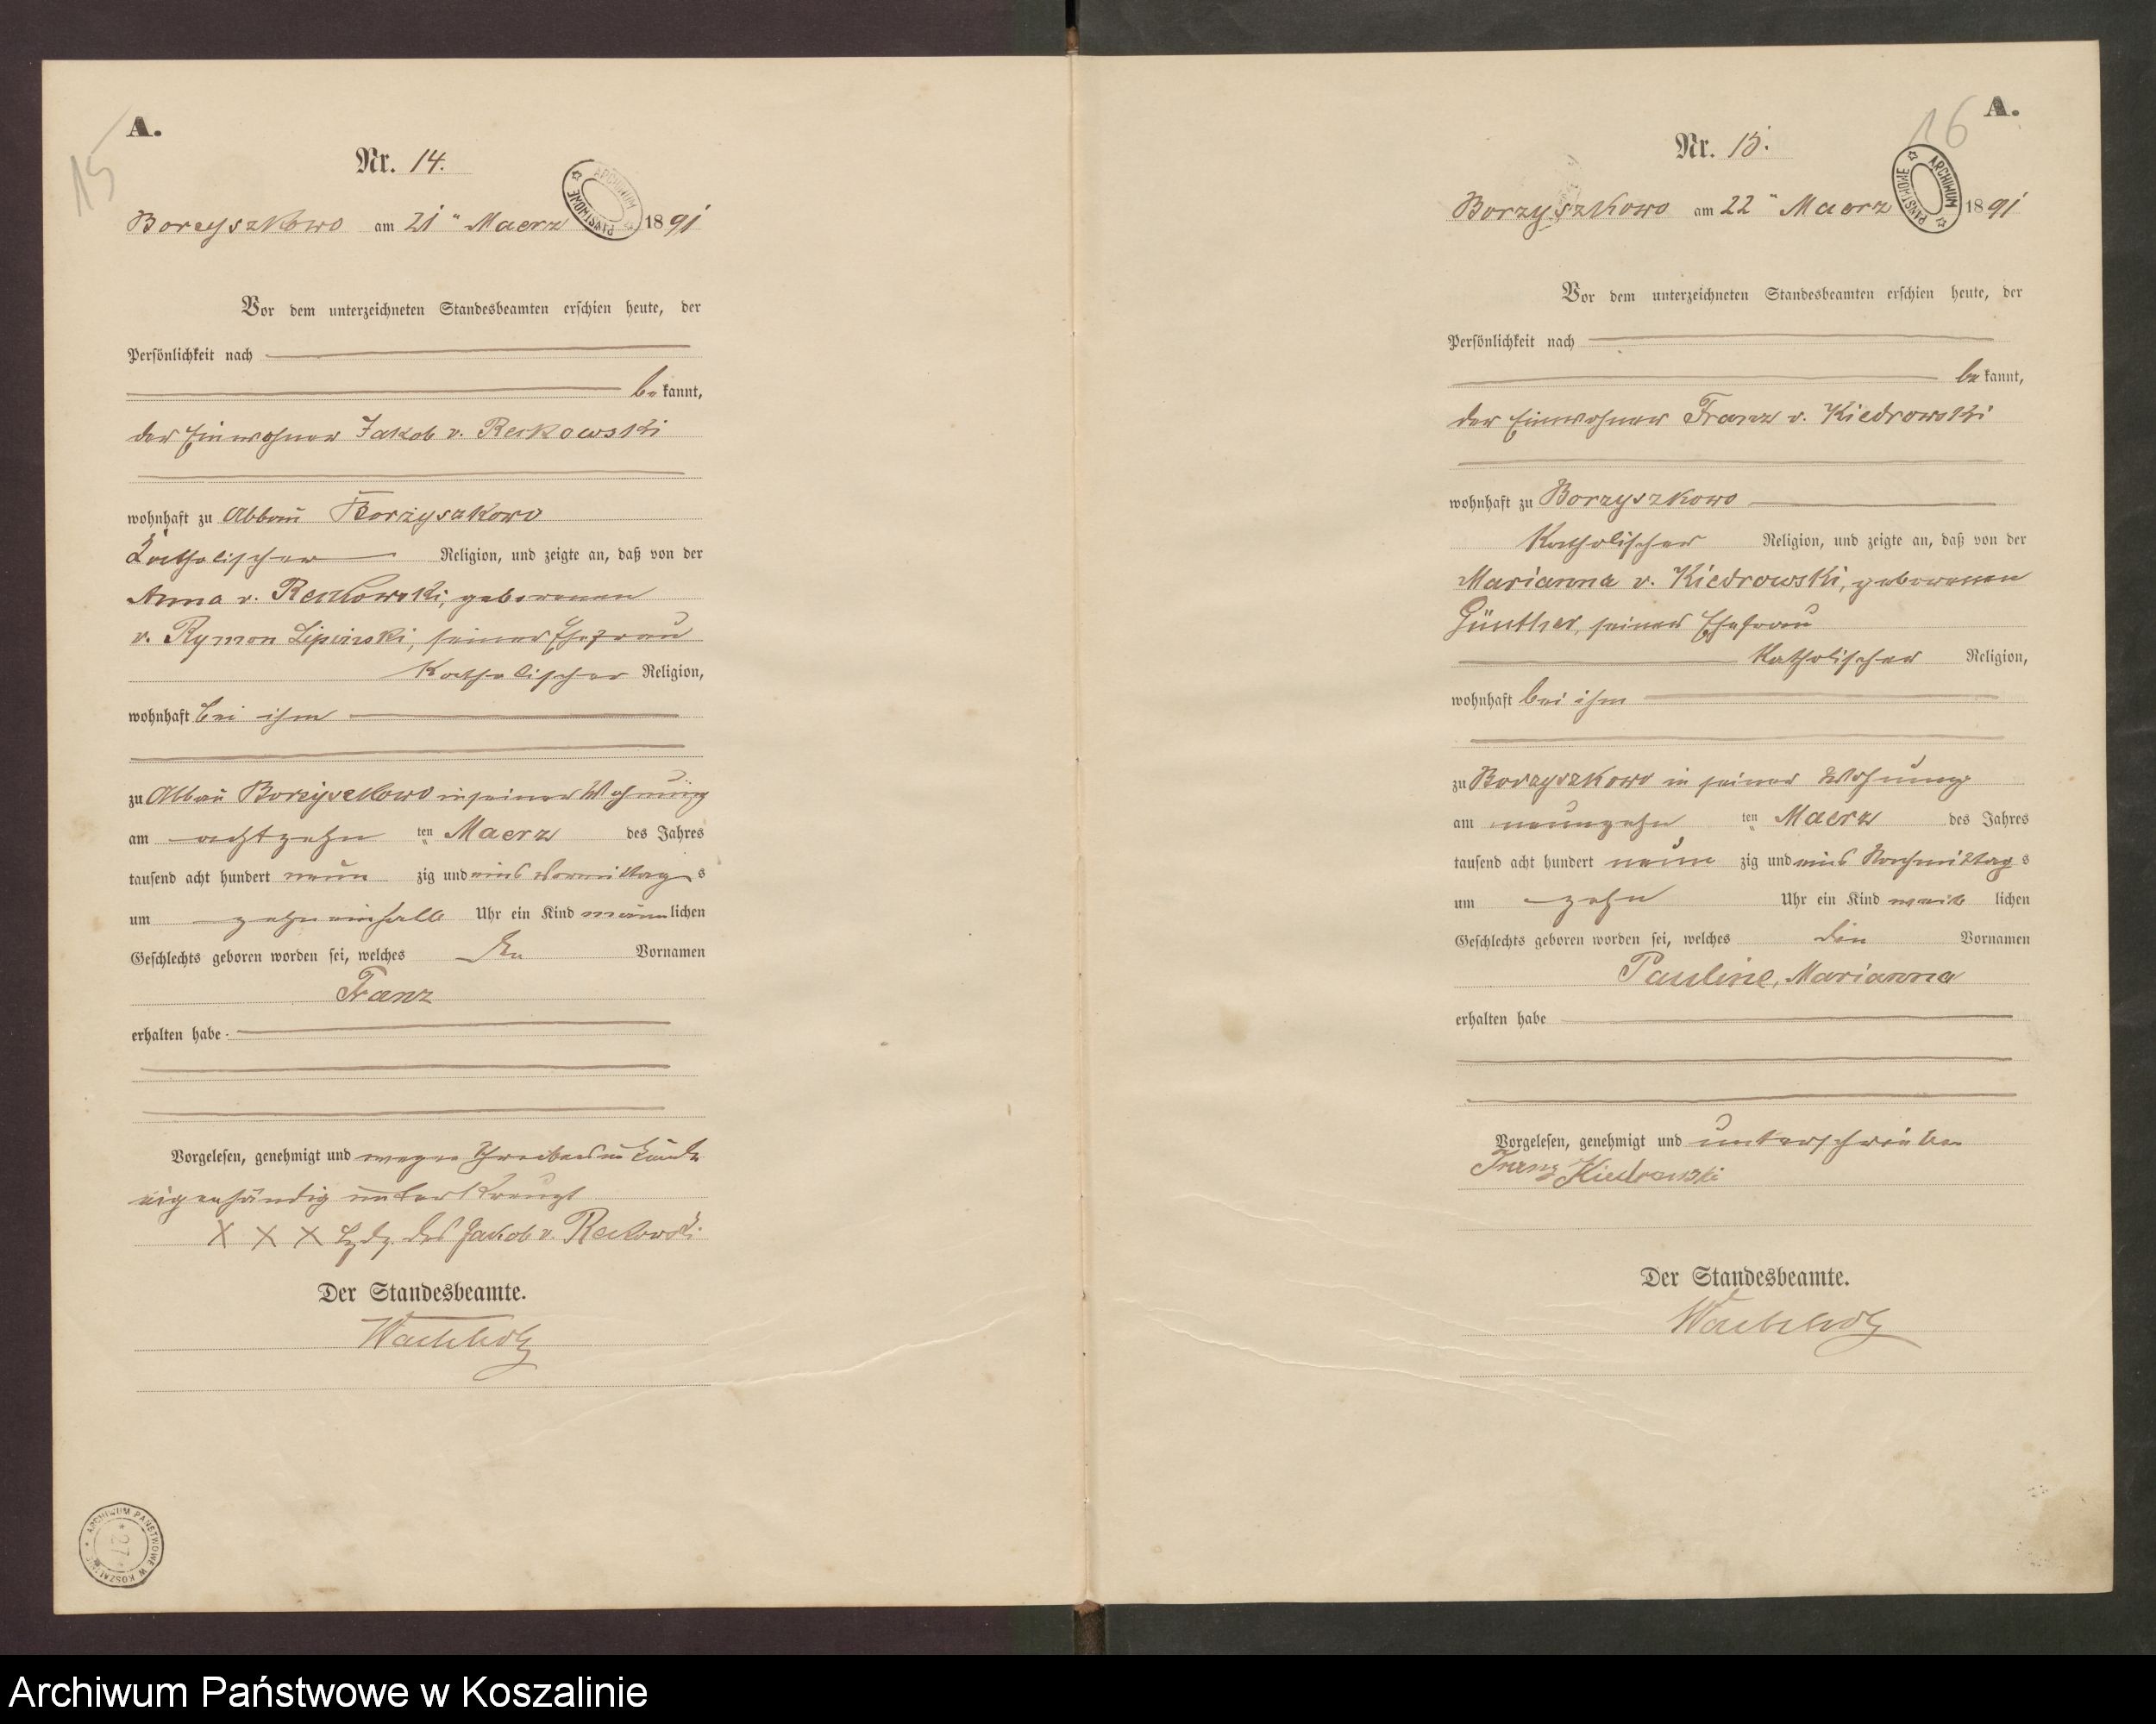 15
A.
Nr. 14.
Borzyszkowo am 21ten Maerz 1891
ARCHIWUM PAŃSTWOWE
Vor dem unterzeichneten Standesbeamten erschien heute, der
Persönlichkeit nach
bekannt,
der Einwohner Jakob v. Reskowski
wohnhaft zu Abbau Borzyszkowo
Katholischer Religion, und zeigte an, daß von der
Anna v. Reskowski, geborenen
v. Rymon Lipinski, seiner Ehefrau
Katholischer Religion,
wohnhaft bei ihm
zu Abbau Borzyszkowo in seiner Wohnung
am achtzehn ten Maerz des Jahres
tausend acht hundert neun zig und eins Vormittag s
um zehn einhalb Uhr ein Kind männlichen
Geschlechts geboren worden sei, welches den Vornamen
Franz
erhalten habe
Vorgelesen, genehmigt und wegen Schreibensunkunde
eigenhändig unterkreuzt
X X X des Jakob v. Reskowski
Der Standesbeamte.
Wachholz
ARCHIWUM PAŃSTWOWE W KOSZALINIE
27
16
A.
Nr. 15.
Borzyszkowo am 22ten Maerz 1891
ARCHIWUM PAŃSTWOWE
Vor dem unterzeichneten Standesbeamten erschien heute, der
Persönlichkeit nach
bekannt,
der Einwohner Franz v. Kiedrowski
wohnhaft zu Borzyszkowo
Katholischer Religion, und zeigte an, daß von der
Marianna v. Kiedrowski, geborenen
Günther, seiner Ehefrau
Katholischer Religion,
wohnhaft bei ihm
zu Borzyszkowo in seiner Wohnung
am neunzehn ten Maerz des Jahres
tausend acht hundert neun zig und eins Nachmittag s
um zehn Uhr ein Kind weib lichen
Geschlechts geboren worden sei, welches die Vornamen
Pauline, Marianna
erhalten habe
Vorgelesen, genehmigt und unterschrieben
Franz Kiedrowski
Der Standesbeamte.
Wachholz
Archiwum Państwowe w Koszalinie